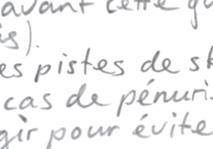 avant cette
is).
es pistes de
cas de pénuri
gir pour évite